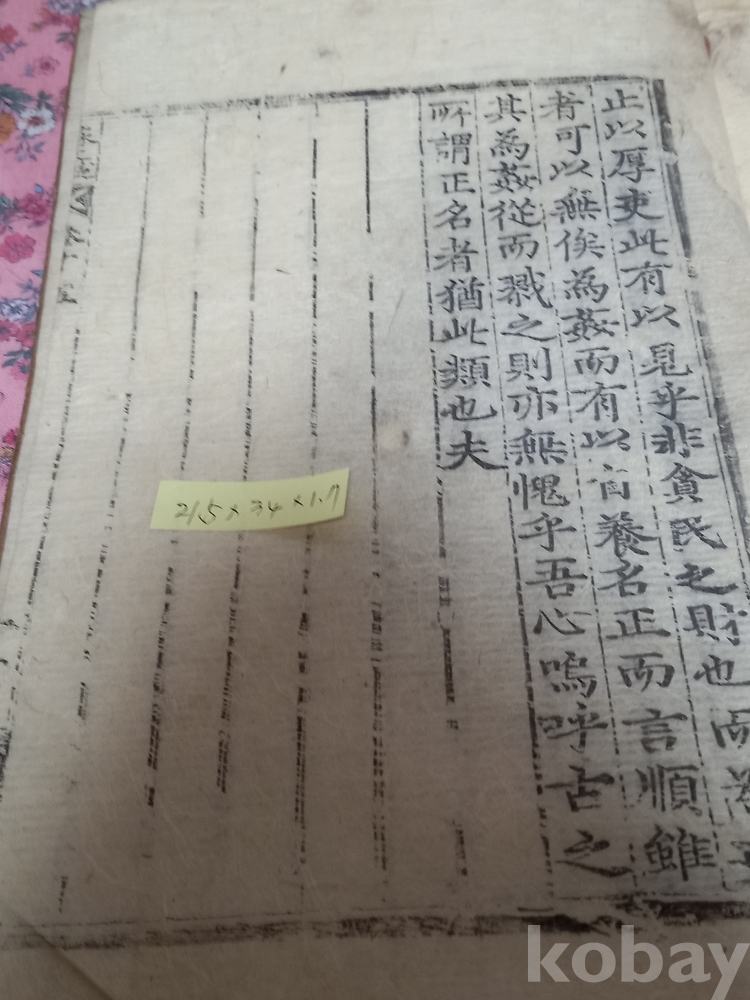 止以厚吏此有以見乎非貪民之貯也而為
者可以無俟為姦而有以自養名正而言順雖
其為姦從而戮之則亦無愧乎吾心嗚呼古之
所謂正名者猶此類也夫
21.5 x 34 x 1.7
kobay